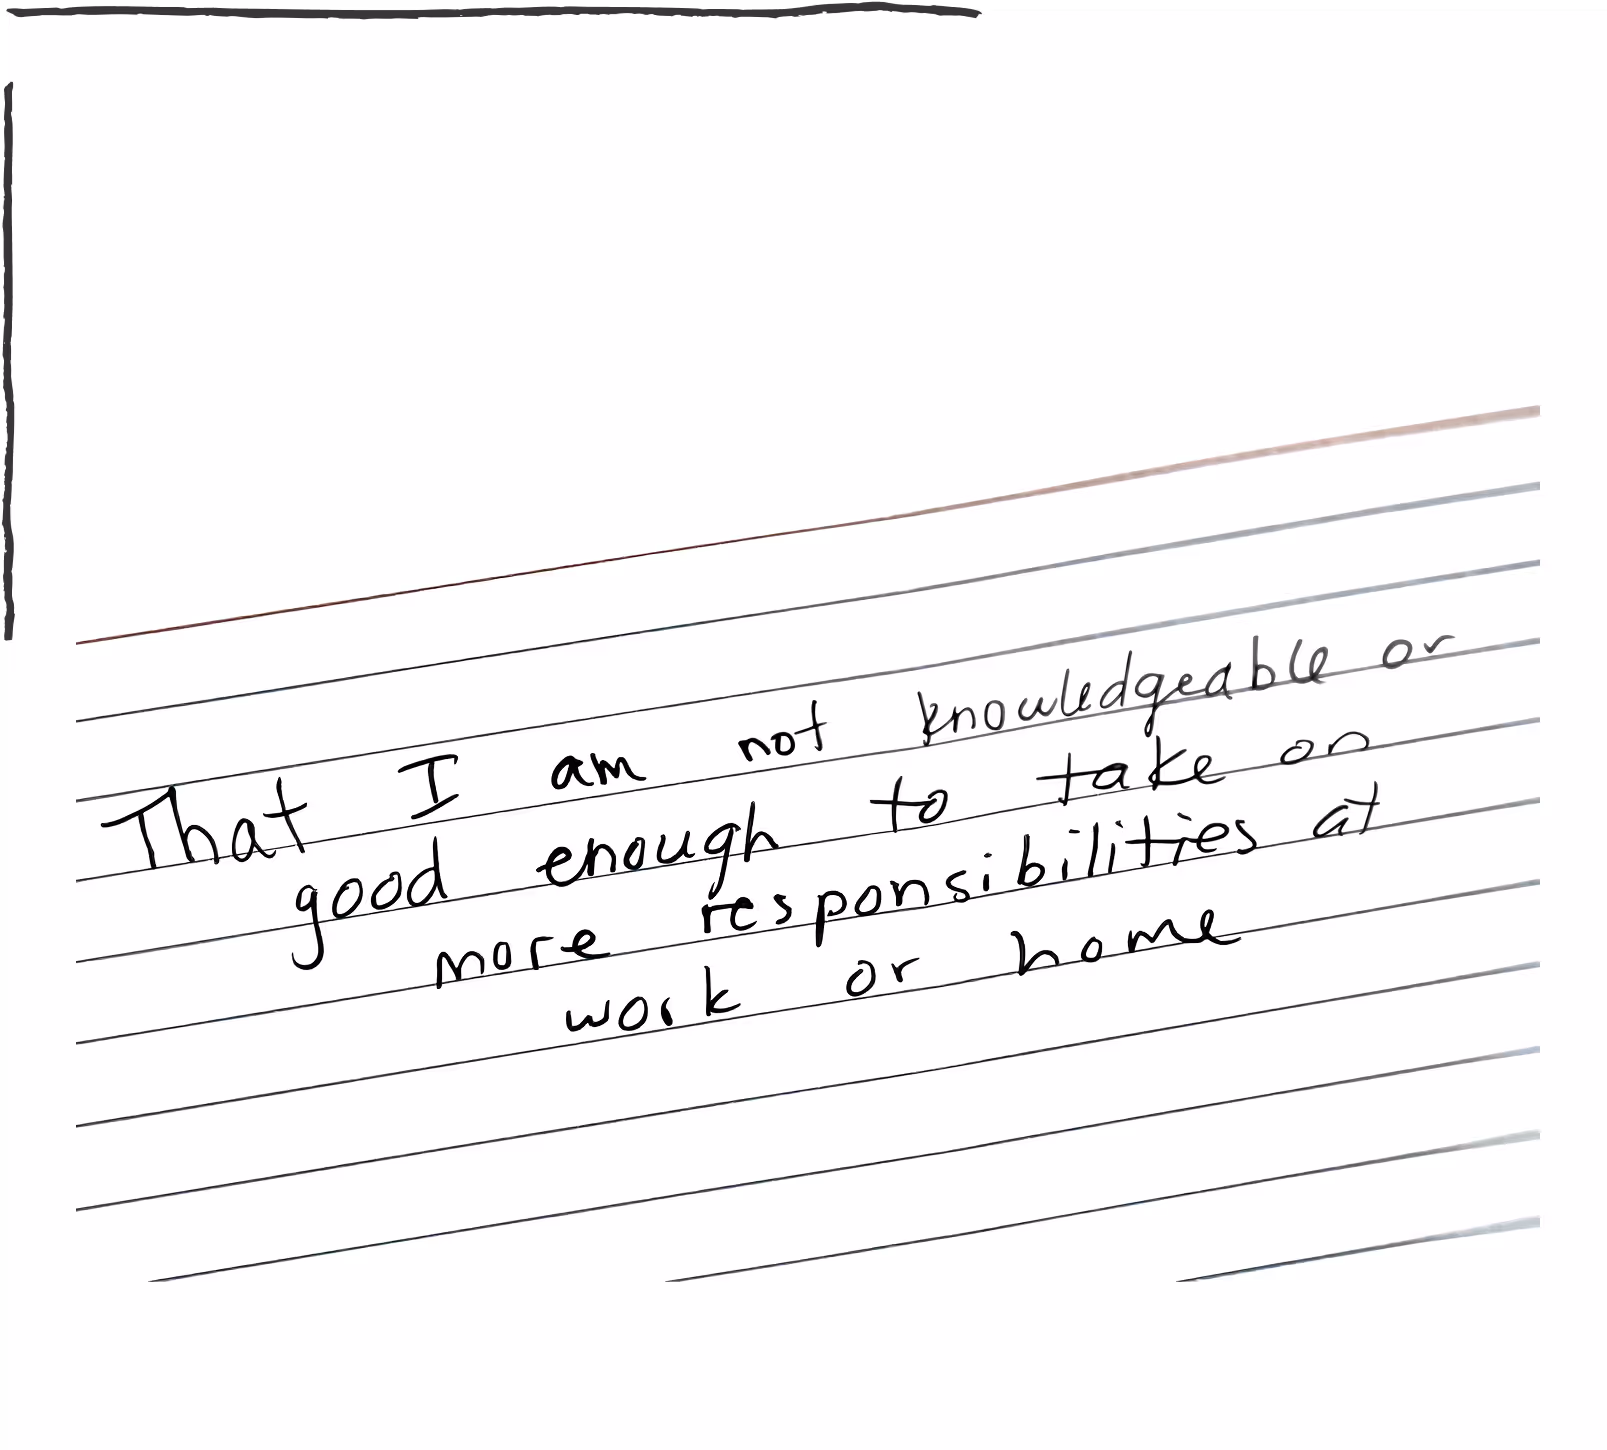 That I am not knowledgeable or
good enough to take on
more responsibilities at
work or home